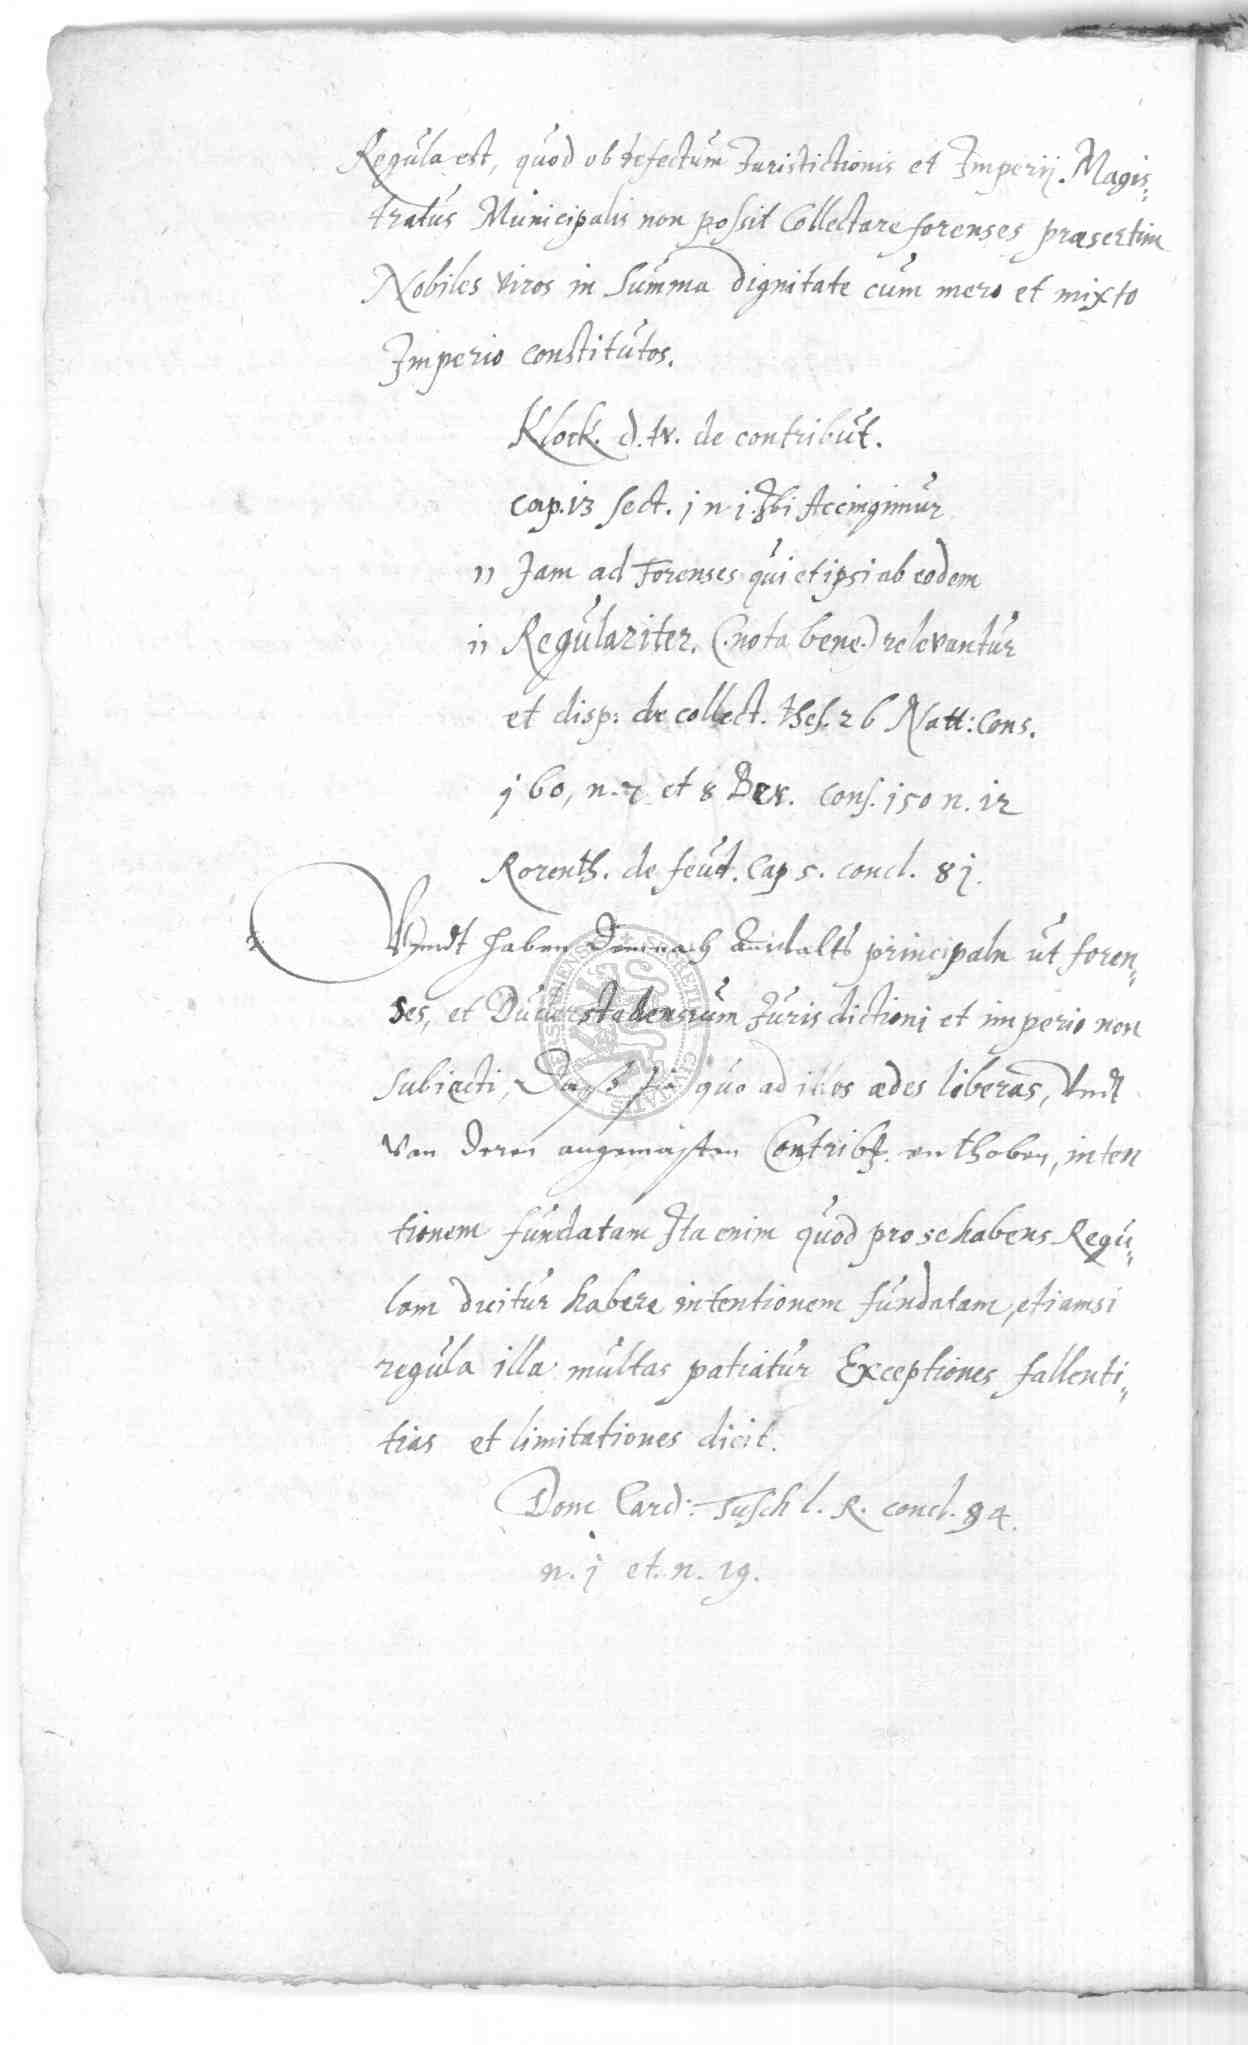 Regula est, quod ob defectum Jurisdictionis et Imperij. Magis=
tratus Municipalis non possit Collectare forenses præsertim
Nobiles viros in Summa dignitate cum mero et mixto
Imperio constitutos.
Klock. d. tr. de contribut.
cap. 13 sect. j n j. Ibi Accingimur
" Jam ad Forenses qui et ipsi ab eodem
" Regulariter. (: nota bene :) relevantur
et disp: de collect. thes. 26 Natt: Cons.
j60, n. 7 et 8 Ber. cons. j50 n. 12
Rorenth. de feud. Cap 5. concl. 8j.
Vnndt haben Demnach Anwalts principaln ut foren=
ses, et Duderstadensium Jurisdictioni et imperio non
subiecti, Daß sie quo ad illos ædes liberas, Vndt
Von deren angemasten Contrib. enthoben, inten
tionem fundatam Ita enim quod pro se habens Regu=
lam dicitur habere intentionem fundatam, etiamsi
regula illa multas patiatur Exceptiones fallenti=
tias et limitationes dicit.
Dom Card: Tusch l. R. concl. 94.
n. j et. n. 19.